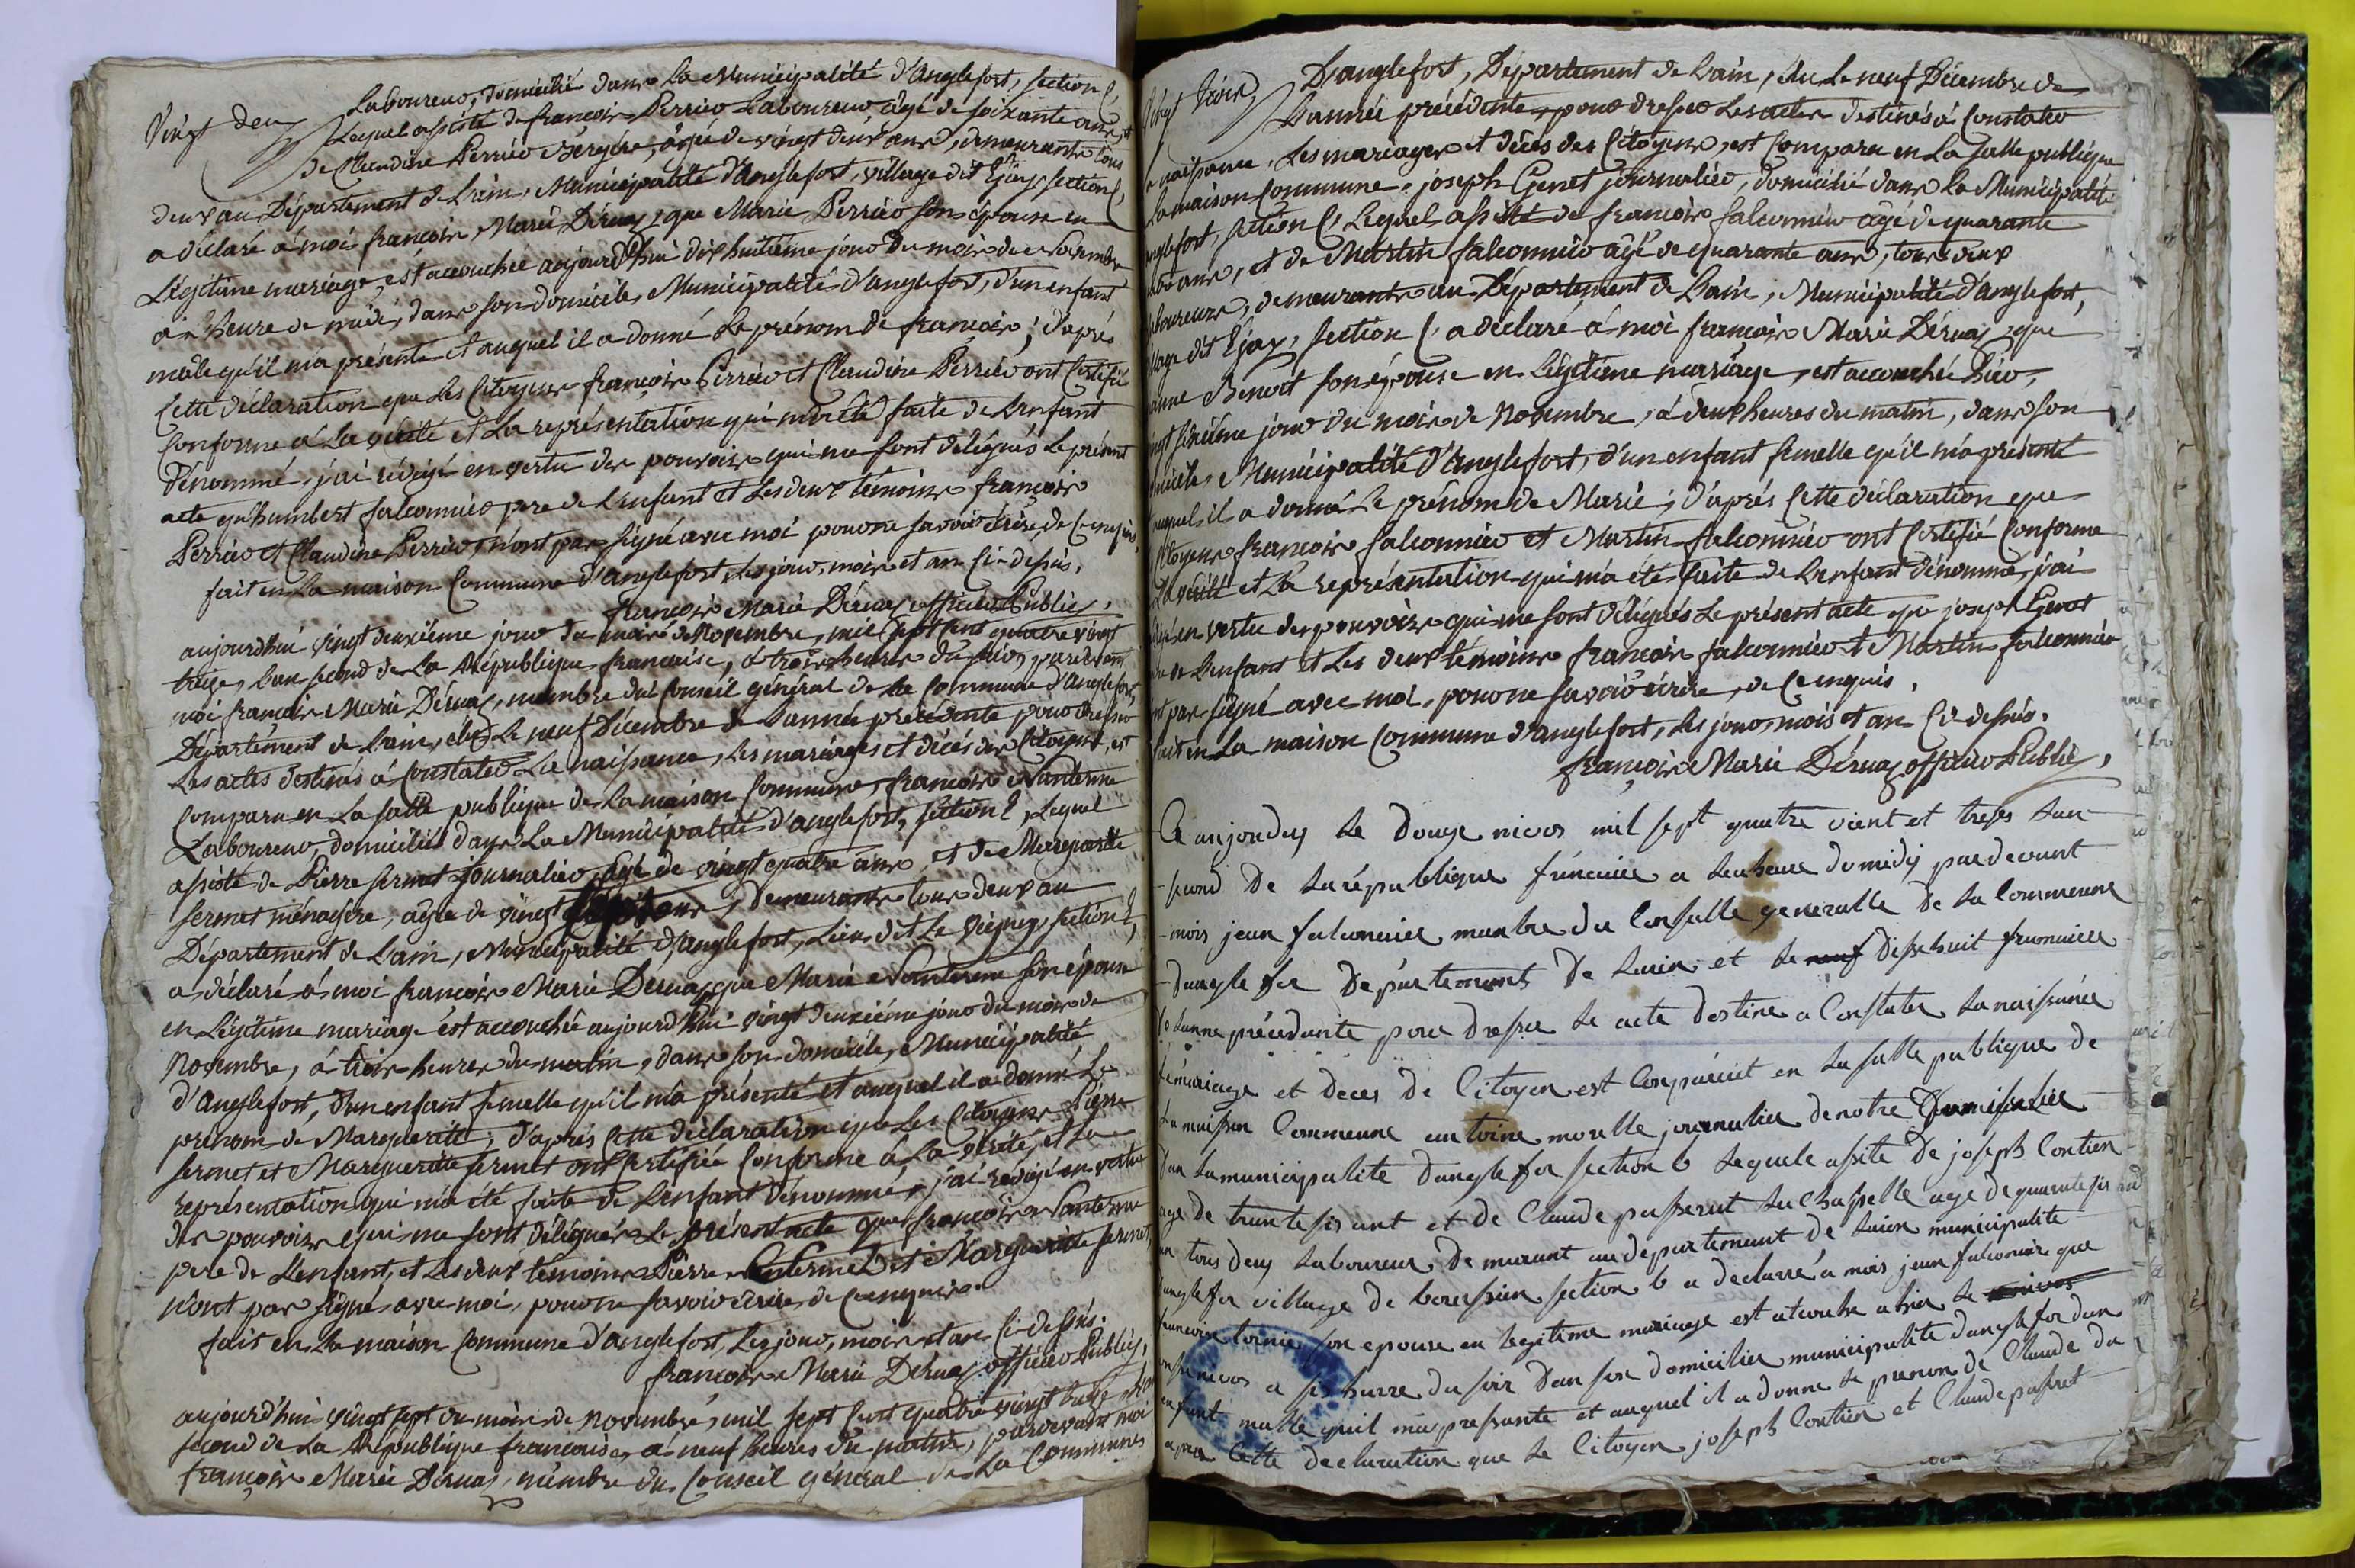 Vingt deux
Laboureur, domicilié dans la Municipalité d'anglefort, section C,
Lequel assisté de françois Perrier Laboureur, âgé de soixante ans, et
de Claudine Perrier Bergère, âgée de vingt deux ans, demeurants tous
deux au Département de Lain, Municipalité d'Anglefort, village dit Ejoy, section C,
a déclaré à moi françois Marie Déruaz, que Marie Perrier son épouse en
Légitime mariage, est accouchée aujourd'hui dix huitième jour du mois de Novembre
à heure de midi, dans son domicile, Municipalité d'anglefort, d'un enfant
mâle qu'il ma présenté et auquel il a donné Le prénom de françois; d'après
Cette déclaration que Les Citoyens françois Perrier et Claudine Perrier ont Certifié
Conforme à La vérité et La représentation qui m'a été faite de L'enfant
dénommé, j'ai rédigé en vertu des pouvoirs qui me sont délégués Le présent
acte qu'humbert falconnier pere de L'enfant et Les deux témoins françois
Perrier et Claudine Perrier, n'ont pas signé avec moi pour ne savoir écrire, de Ce enquis.
fait en La maison Commune d'anglefort, Les jour, mois et an Ci-dessus.
françois Marie Déruaz officier Public,
aujourd'hui vingt deuxième jour du mois de Novembre, mil sept cent quatre vingt
treize, L'an second de La République françoise, à trois heures du soir, pardevant
moi françois Marie Déruaz, membre du Conseil général de la Commune d'Anglefort,
Département de Lain, élu Le neuf Décembre de L'année précédente pour dresser
Les actes destinés à Constater La naissance, Les mariages et décès des Citoyens, est
Comparu en La salle publique de La maison Commune, françois Nanterme
Laboureur, domicilié dans La Municipalité d'anglefort, section , Lequel
assisté de Pierre sermet journalier, âgé de vingt quatre ans, et de Marguerite
sermet ménagere, âgée de vingt ans, demeurants tous deux au
Département de Lain, Municipalité d'Anglefort, Lieu dit Le vigney, section ,
a déclaré à moi françois Marie Déruaz que Marie Nanterme son épouse
en Légitime mariage est accouchée aujourd'hui vingt deuxième jour du mois de
Novembre, à trois heures du matin, dans son domicile, Municipalité
d'Anglefort, d'un enfant femelle qu'il m'a présenté et auquel il a donné Le
prénom de Marguerite; d'après Cette déclaration que Les Citoyens Pierre
sermet et Marguerite sermet ont Certifiée Conforme à La vérité, et La
représentation qui m'a été faite de L'enfant dénommé, j'ai rédigé en vertu
des pouvoirs qui me sont délégués Le présent acte que françois Nanterme
pere de L'enfant, et Les deux témoins Pierre et Marguerite sermet,
n'ont pas signé avec moi, pour ne savoir écrire, de Ce enquis.
fait en La maison Commune d'anglefort, Les jour, mois et an Ci-dessus.
françois Marie Déruaz officier Public,
aujourd'hui vingt sept du mois de Novembre, mil sept Cent quatre vingt treize L'an
second de La République françoise, à neuf heures du matin, pardevant moi
françois Marie Déruaz, membre du Conseil général de La Commune
Vingt trois
D'anglefort, Département de Lain, élu Le neuf Décembre de
L'année précédente, pour dresser Les actes destinés à Constater
naissance, Les mariages et décès des Citoyens, est Comparu en La salle publique
La maison Commune, joseph Genet journalier, domicilié dans La Municipalité
anglefort, section C, Lequel assisté de françois falconnier âgé de quarante
ans, et de Martin falconnier âgé de quarante ans, tous deux
Laboureurs, demeurants au Département de Lain, Municipalité d'anglefort,
village dit Ejoy, section C, a déclaré à moi françois Marie Déruaz que
anne Benoit son épouse en Légitime mariage, est accouchée hier,
vingt sixième jour du mois de Novembre, à deux heures du matin, dans son
domicile, Municipalité d'Anglefort, d'un enfant femelle qu'il m'a présenté
auquel il a donné Le prénom de Marie; d'après Cette déclaration que
Citoyens françois falconnier et Martin falconnier ont Certifié Conforme
La vérité et La représentation qui m'a été faite de L'enfant dénommé, j'ai
rédigé en vertu des pouvoirs qui me sont délégués Le présent acte que joseph Genet
pere de L'enfant et Les deux témoins françois falconnier et Martin falconnier
n'ont pas signé avec moi, pour ne savoir écrire, de Ce enquis.
fait en La maison Commune d'anglefort, Les jour, mois et an Ci-dessus.
françois Marie Déruaz officier Public,
Ce aujourduy Le douze nivos mil sept quatre vient et treses Lan
segond De La république frincaise a Leuheure domidy pardevant
mois jean falconnier manbre du Consielle generalle De La Commeune
Dangle for Département De Laein et Le neuf Dissehuit frumaires
Lanne précedante pour Dresser Le acte destine a Constater La naissance
Le mariage et deces de Citoyen est Comparüit en La salle publique de
La maisson Commeune antoine moulle journalier de notre Domisilier
Dan La municipalite Dangle for section b Lequele assite De joseph Contier
age de trantesis ant et de Claude passerat La Chappelle age de quarante sis
an tous deux Laboureur Demeurant audepartemant de Laien municipalite
dangle for village de boursin section b a declarré a mois jean falconnier que
francoise son epouse en legitime mariage est acouche a hier Le nivos
onse nivos a sis hurre du soir Dan son domicilier municipalite dangle for dun
enfant malle quil ma pressante et auquel il a donne Le prenon de Claude da
apres Cette declaration que Le Citoyen joseph Contier et Claude passerat